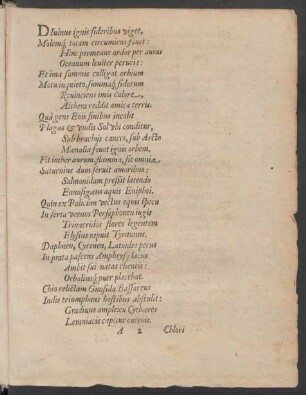 DIuinus ignis sideribus viget,
Molemq́; tuam circumiens fouet:
Hinc permeans ardor per auras
Oceanum leuiter perurit:
Et ima summis colligat orbium
Motu inquieto, summaq́; siderum
Reuinciens imis calore,
Æthera reddit amica terris.
Quà gens Eois finibus incolit
Plagas & vndis Sol vbi conditur,
Sub brachijs cancri, sub Arcto
Mænalia fouet ignis orbem.
Fit imber aurum, flamma, fit omnia
Saturnius dum seruit amoribus:
Salmonidam pressit latendo
Ennosigæus aquis Eniphei.
Quin ex Palicûm vectus equis specu
In serta vernos Persephonen iugis
Trinacridos flores legentem
Elysius rapuit Tyrannus.
Daphnen, Cyrenen, Latoides pecus
In prata pascens Amphrysi lacus
Ambit sui natas clientis:
Oebalius q́; puer placebat.
Chio relictam Gnosida Bassareus
Indis triumphans hostibus abstulit:
Gradiuus amplexu Cytheres
Lemniacis capitur catenis.
A 2 Chlori